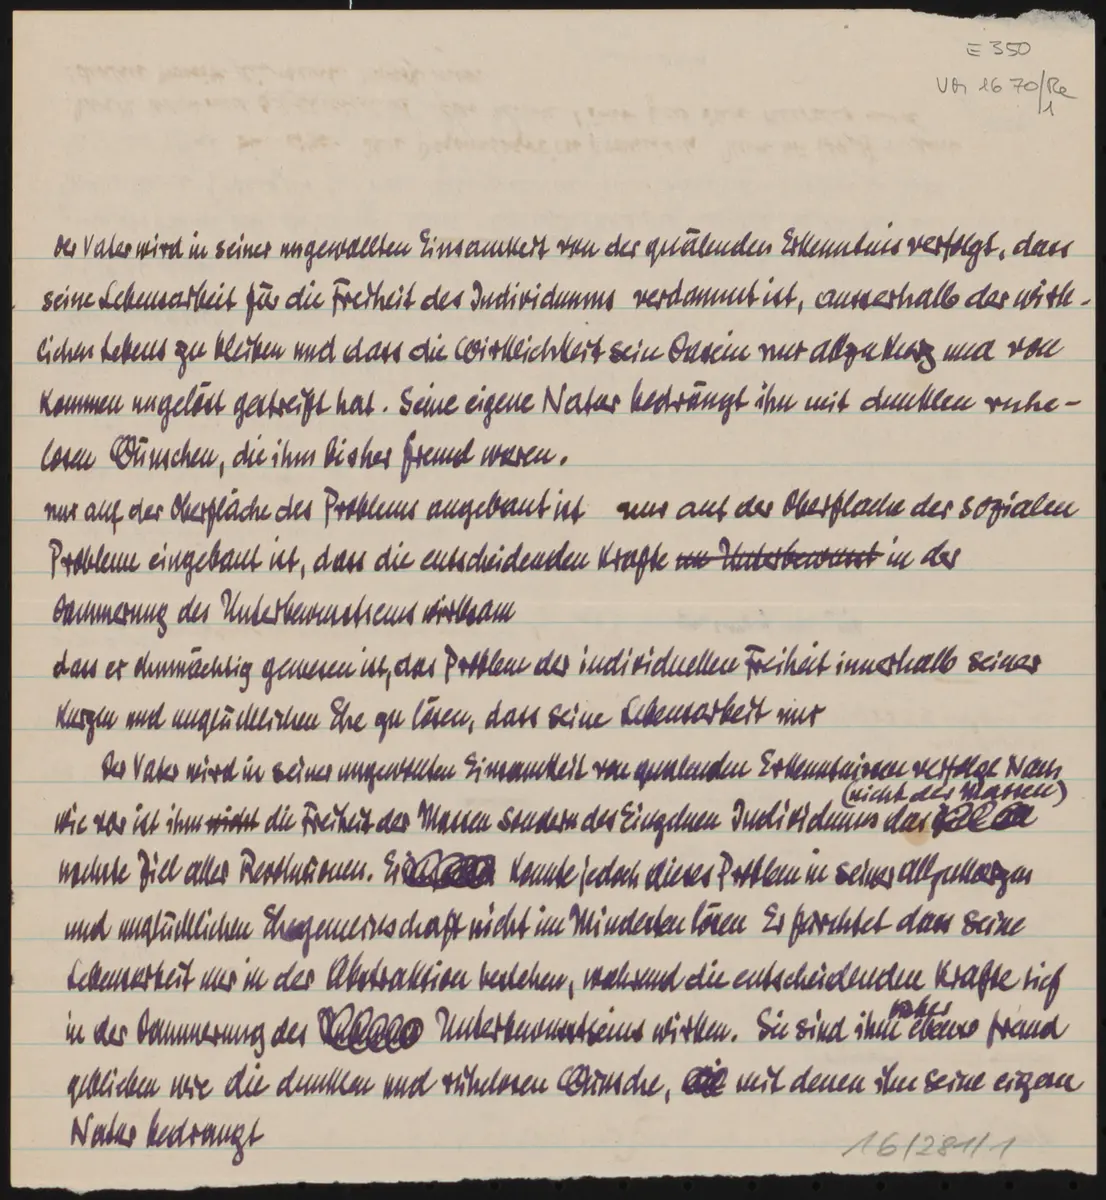 E 350
VBr 1670/Re
1
Der Vater wird in seiner ungewollten Einsamkeit von der quälenden Erkenntnis verfolgt, dass
seine Lebensarbeit für die Freiheit des Individuums verdammt ist, ausserhalb der wirk-
lichen Lebens zu bleiben und dass die Wirklichkeit sein Dasein nur allzu kurz und von
kommen ungelöst gestreift hat. Seine eigene Natur bedrängt ihn mit dunklen ruhe-
losen Wünschen, die ihm bisher fremd waren.
nur auf der Oberfläche des Problems angebaut ist nur auf der Oberfläche der sozialen
Probleme eingebaut ist, dass die entscheidenden Kräfte im Unterbewusst in der
Dämmerung des Unterbewusstseins wirksam
dass er ohnmächtig gewesen ist, das Problem der individuellen Freiheit innerhalb seiner
kurzen und unglücklichen Ehe zu lösen, dass seine Lebensarbeit nur
Der Vater wird in seiner ungewollten Einsamkeit von quälenden Erkenntnissen verfolgt Nach
(nicht der Massen)
wie vor ist ihm nicht die Freiheit der Massen sondern des Einzelnen Individuums das
nächste Ziel aller Revolutionen. Er konnte jedoch dieses Problem in seiner allzukurzen
und unglücklichen Ehegemeinschaft nicht im Mindesten lösen Er fürchtet dass seine
Lebensarbeit nur in der Abstraktion bestehen, während die entscheidenden Kräfte tief
in der Dämmerung des Unterbewusstseins wirken. Sie sind ihm ebenso fremd
geblieben wie die dunklen und ruhelosen Wünsche, mit denen ihn seine eigene
Natur bedrängt
16/281/1